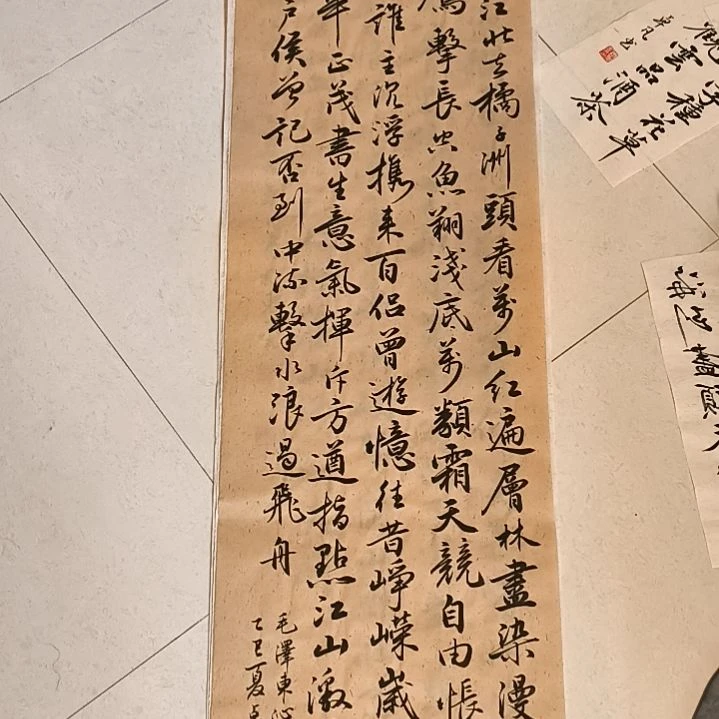 江北去橘子洲頭看萬山红遍層林盡染漫
鷹擊長空魚翔淺底萬類霜天競自由悵
誰主沉浮携來百侣曾遊憶往昔崢嶸歲
年正茂書生意氣揮斥方遒指點江山激
户侯曾記否到中流擊水浪遏飛舟
毛澤東沁
乙巳夏
種花草
觀雲品酒茶
卓凡书
盡頭天